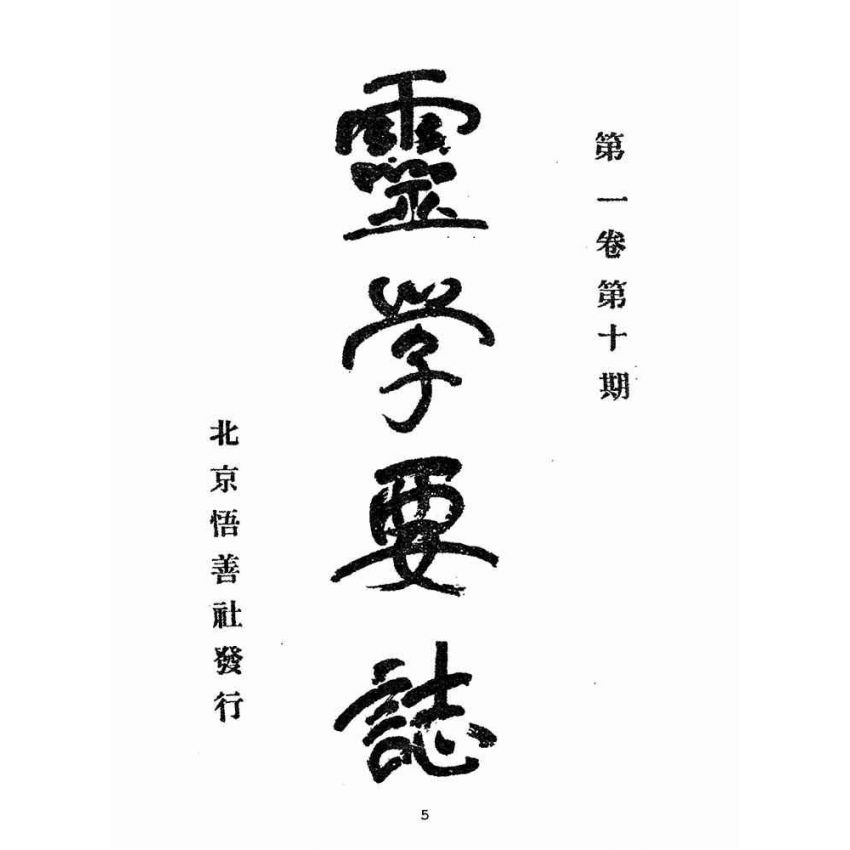 第一卷第十期
靈学要誌
北京悟善社發行
5